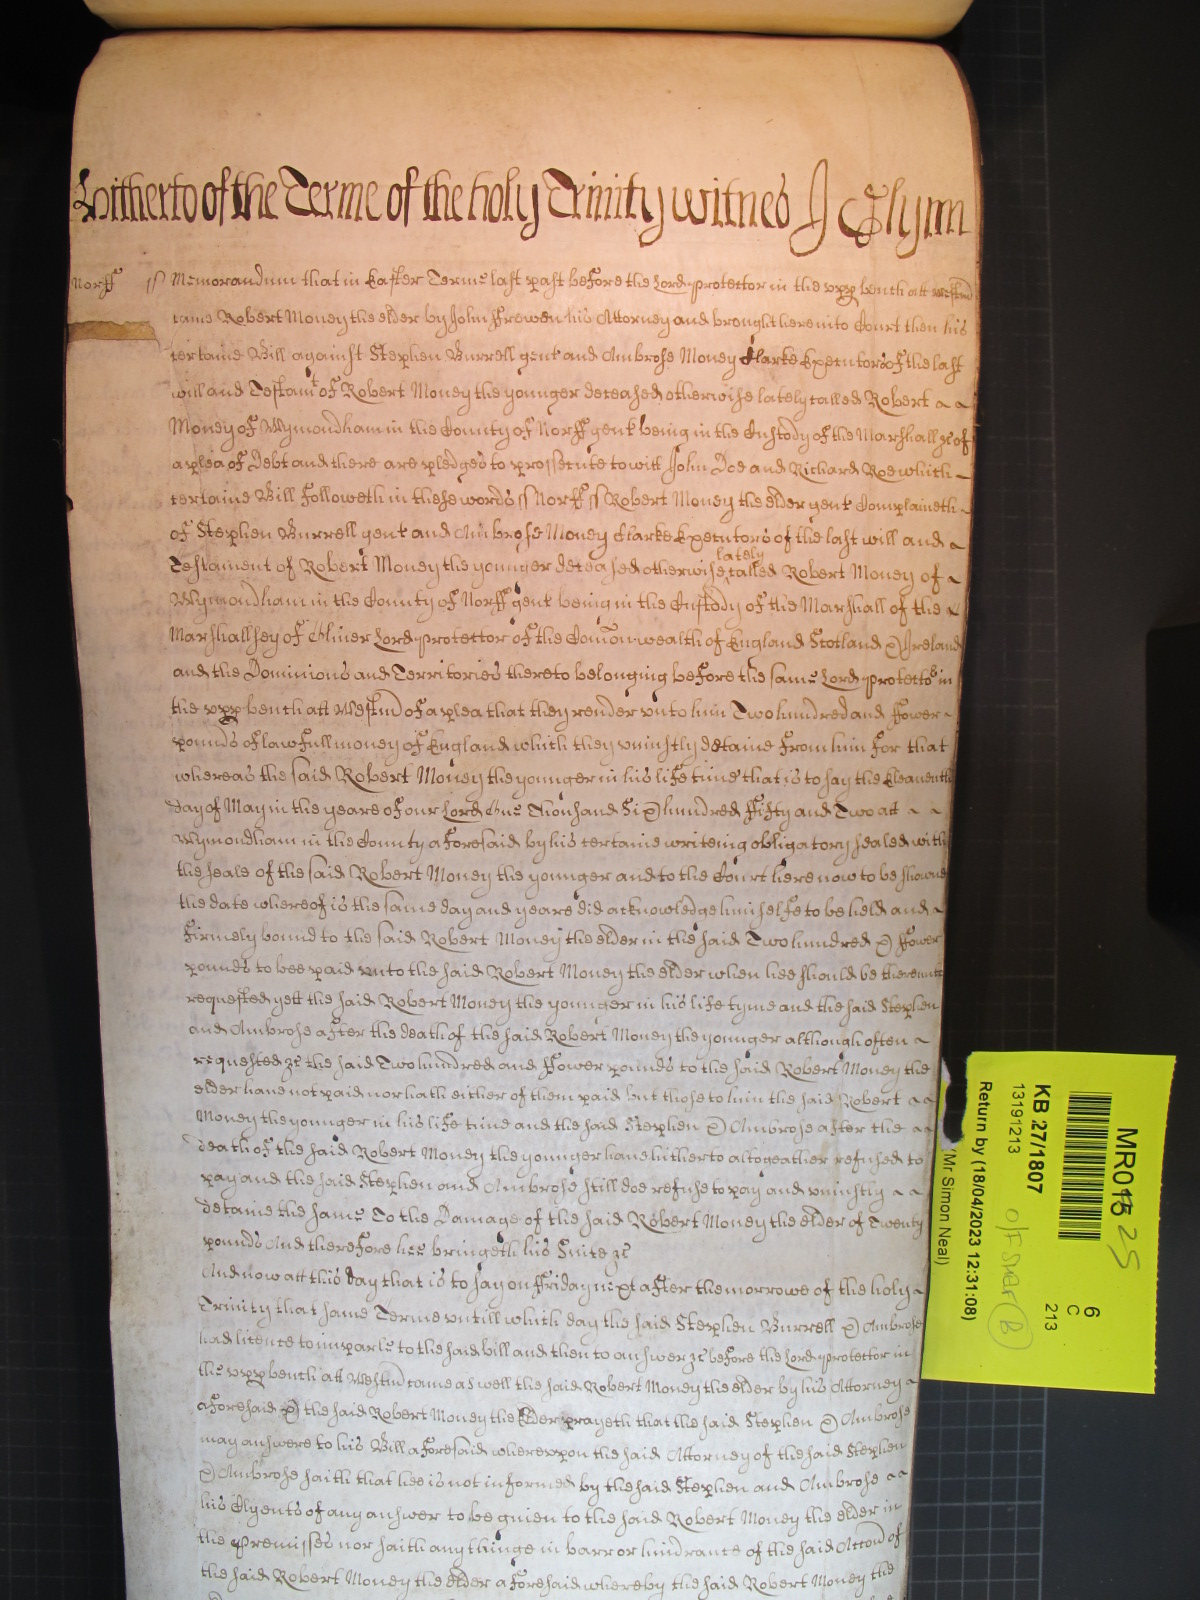 Hitherto of the Terme of the holy Trinity witnes J Glynn
Norff ss Memorandum that in Easter Terme last past before the Lord protector in the upp bench att Westmr
came Robert Money the elder by John Frewen his Attorney and brought here into Court then his
certaine Bill against Stephen Burrell gent and Ambrose Money Clarke Executors of the last
will and Testamt of Robert Money the younger deceased otherwise lately called Robert
Money of Wymondham in the County of Norff gent being in the Custody of the Marshall &c of
a plea of Debt and there are pledges to prossecute to witt John Doe and Richard Roe which
certaine Bill followeth in these words ss Norff ss Robert Money the elder gent Complaineth
of Stephen Burrell gent and Ambrose Money Clarke Executors of the last will and
Testament of Robert Money the younger deceased otherwise lately called Robert Money of
Wymondham in the County of Norff gent being in the Custody of the Marshall of the
Marshallsey of Oliver Lord protector of the Comon-wealth of England Scotland & Ireland
and the Dominions and Territories thereto belonging before the same Lord protector in
the upp bench att Westmr of a plea that they render unto him Two hundred and ffower
pounds of lawfull money of England which they uniustly detaine from him for that
whereas the said Robert Money the younger in his life time that is to say the Eleaventh
day of May in the yeare of our Lord One Thousand Six hundred ffifty and Two att
Wymondham in the County aforesaid by his certaine writeing obligatory sealed with
the seale of the said Robert Money the younger and to the Court here now to be showne
the date whereof is the same day and yeare did acknowledge himselfe to be held and
firmely bound to the said Robert Money the elder in the said Two hundred & ffower
pounds to bee paid unto the said Robert Money the elder when hee should be thereunto
requested yett the said Robert Money the younger in his life tyme and the said Stephen
and Ambrose after the death of the said Robert Money the younger although often
requested &c the said Two hundred and ffower pounds to the said Robert Money the
elder have not paid nor hath either of them paid but those to him the said Robert
Money the younger in his life time and the said Stephen & Ambrose after the
death of the said Robert Money the younger have hitherto altogeather refused to
pay and the said Stephen and Ambrose still doe refuse to pay and uniustly
detaine the same To the Damage of the said Robert Money the elder of Twenty
pounds And therefore hee bringeth his Suite &c
And now att this day that is to say on ffriday next after the morrowe of the holy
Trinity that same Terme untill which day the said Stephen Burrell & Ambrose
had licence to imparle to the said bill and then to answer &c before the Lord protector in
the upp bench att Westmr came as well the said Robert Money the elder by his Attorney
aforesaid & the said Robert Money the Elder prayeth that the said Stephen & Ambrose
may answere to his Bill aforesaid whereupon the said Attorney of the said Stephen
& Ambrose saith that hee is not informed by the said Stephen and Ambrose
his Clyents of any answer to be given to the said Robert Money the elder in
the premisses nor saith any thinge in barr or hindrance of the said Accon of
the said Robert Money the elder aforesaid whereby the said Robert Money the
MR018 25
6
C
213
KB 27/1807
13191213
O/F Shelf B
Return by (18/04/2023 12:31:08)
(Mr Simon Neal)